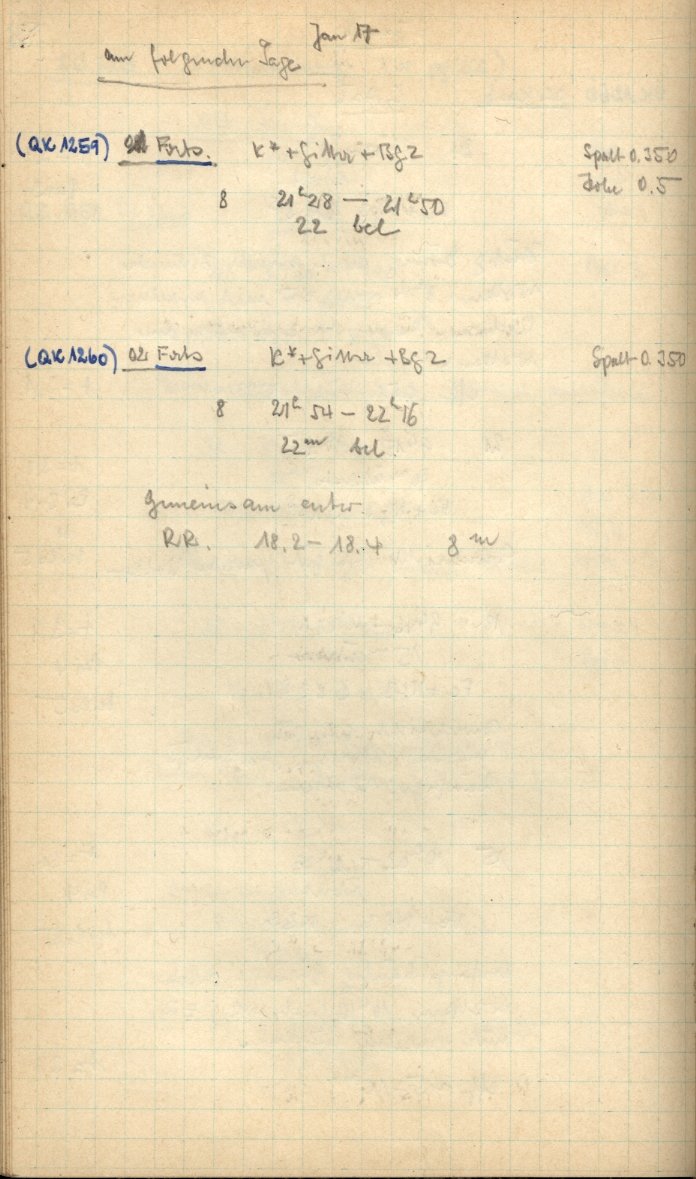 Jan 17
am folgenden Tage
(QK 1259) Forts. K*+Gitter+Bg2 Spalt 0.350
Höhe 0.5
8 21h28 — 21h50
22 bel
(QK 1260) Forts K*+Gitter+Bg2 Spalt 0.350
8 21h 54 – 22h16
22m bel.
Gemeinsam entw.
RR. 18.2 – 18.4 8 m